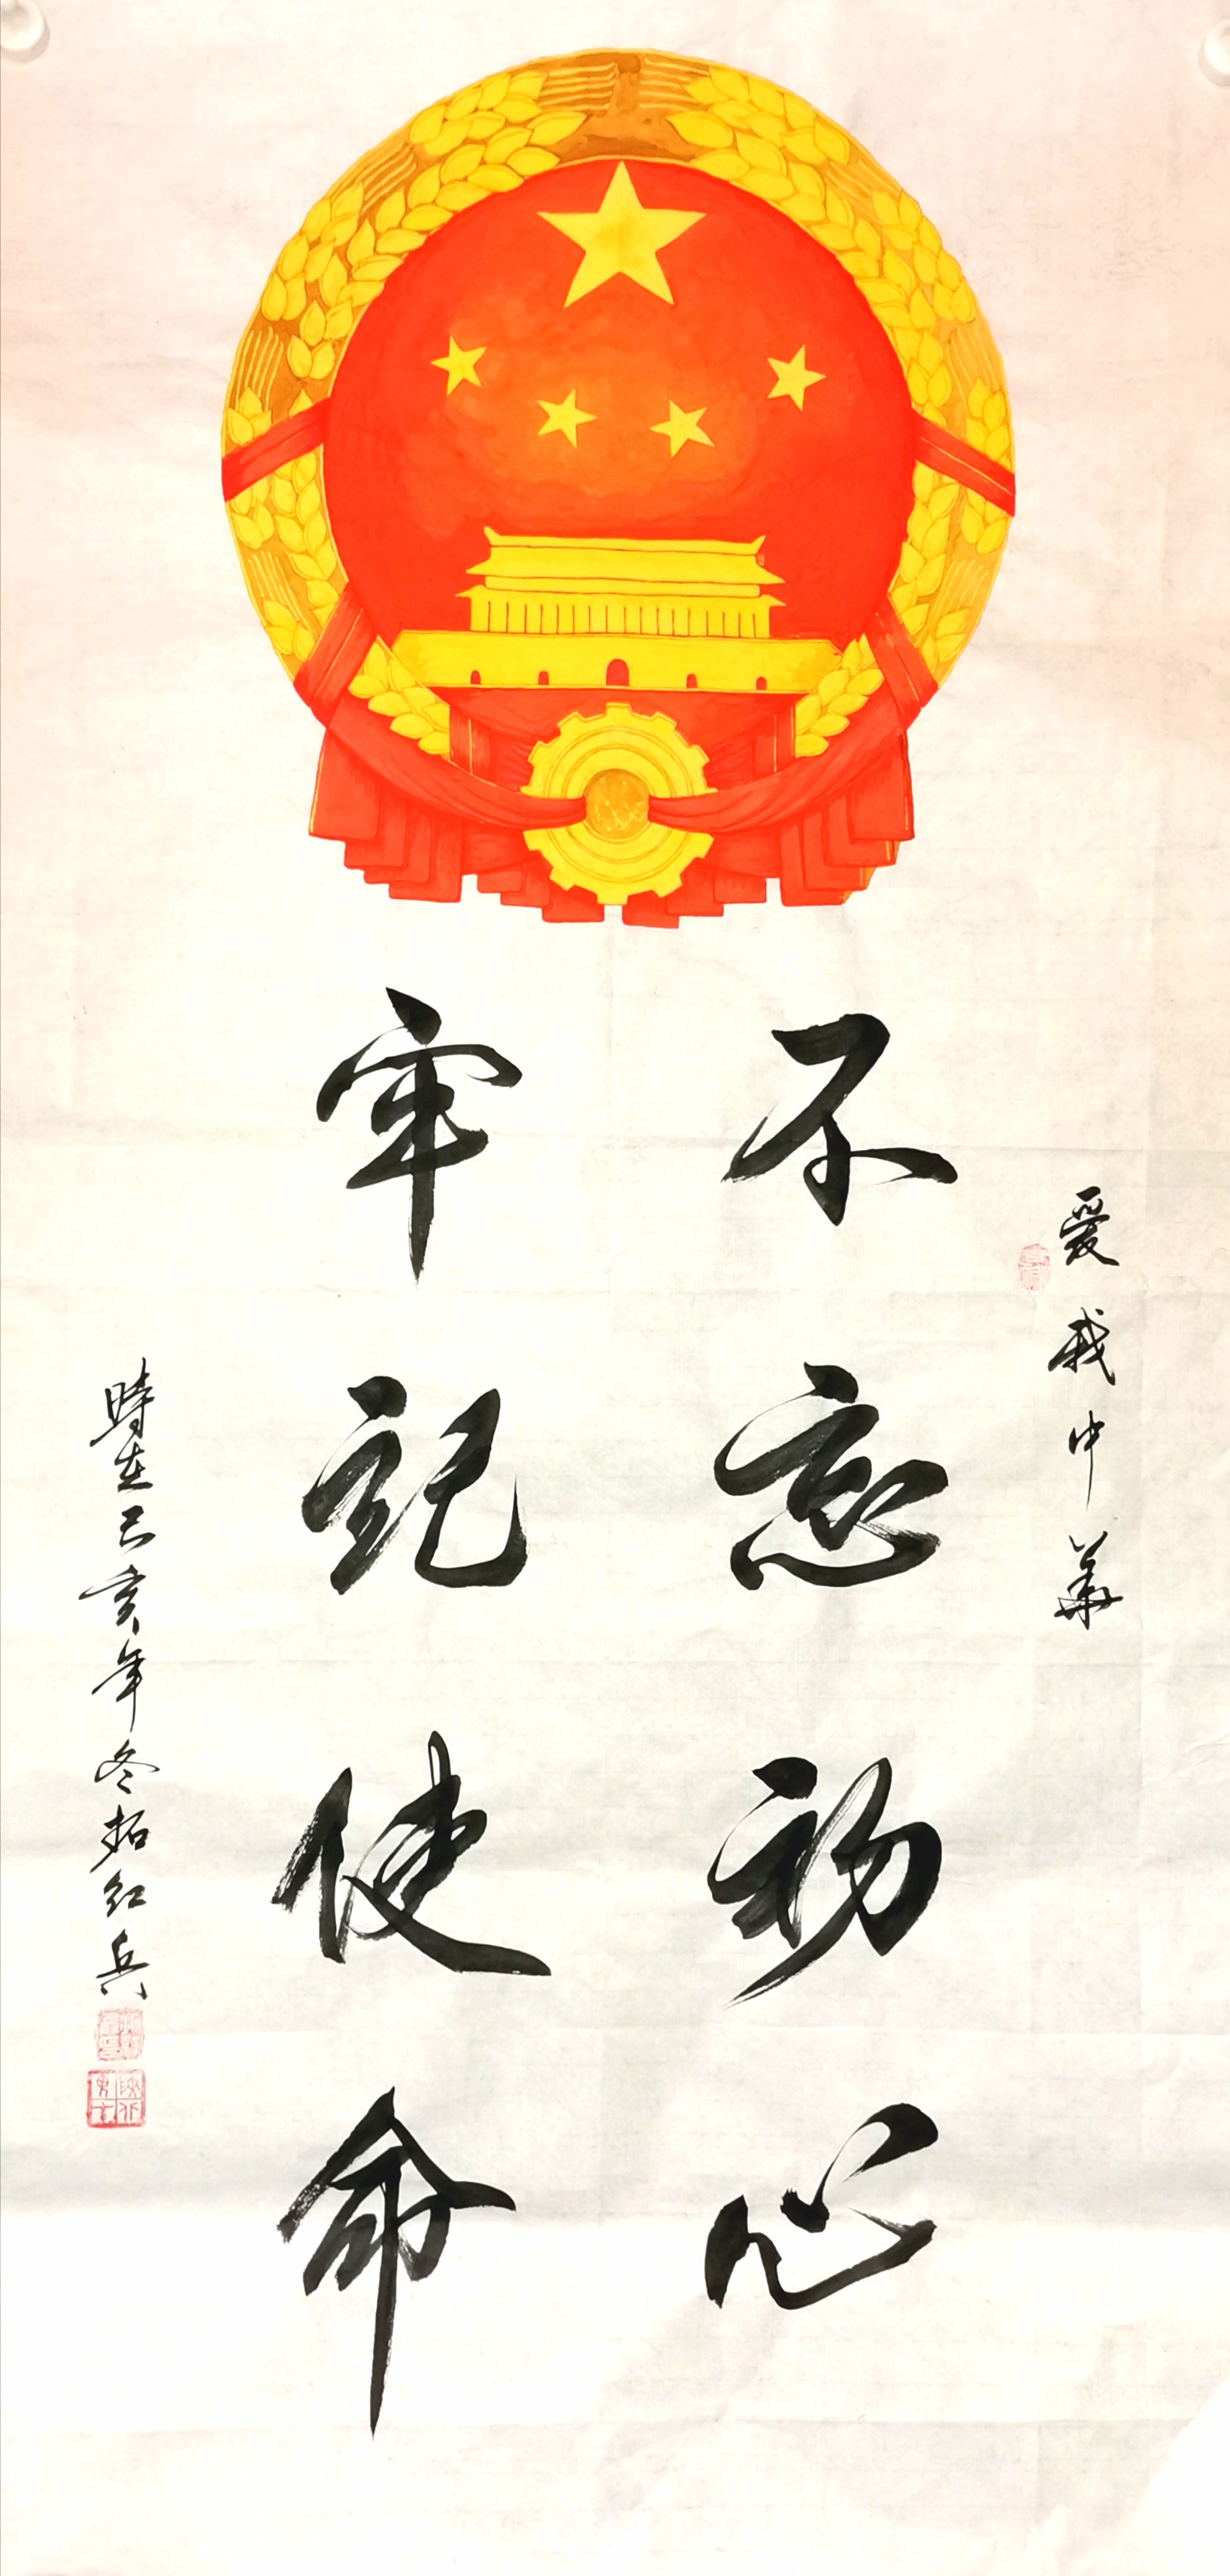 愛我中華
不忘初心
牢記使命
時在己亥年冬拓紅兵